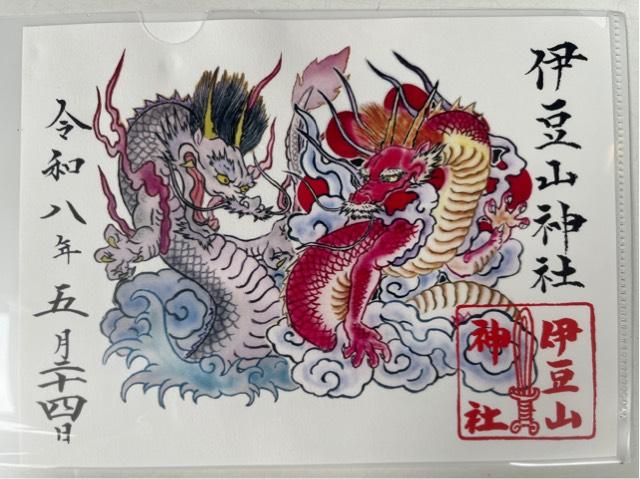 伊豆山神社
令和八年五月二十四日
伊豆山
神社